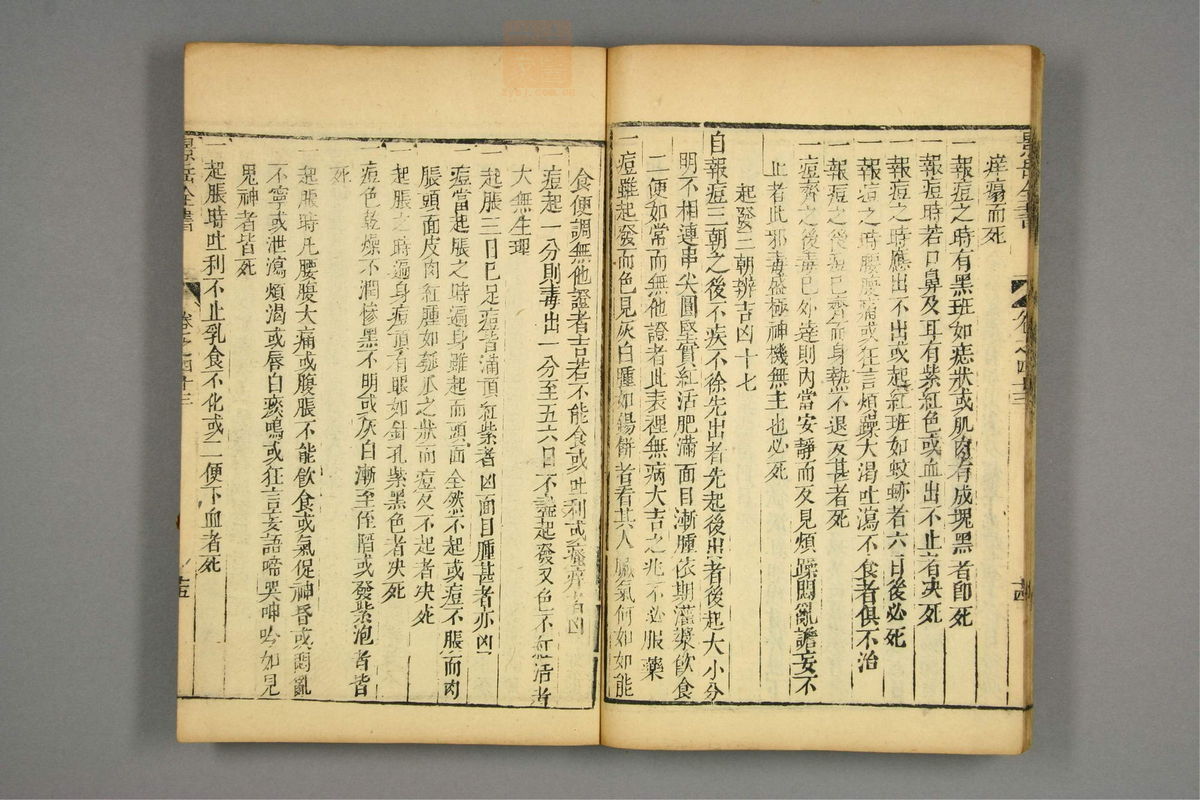 景岳全書
卷之四十三
痒瘍而死
一報痘之時有黑班如痣狀或肌肉有成塊黑者卽死
報痘時若口鼻及耳有紫紅色或血出不止者决死
一報痘之時應出不出或起紅班如蚊跡者六日後必死
一報痘之時腰腹痛或狂言煩躁大渴吐瀉不食者俱不治
一報痘之後痘已齊而身熱不退反甚者死
一痘齊之後毒已外達則內當安靜而反見煩躁悶亂譫妄不
止者此邪毒盛極神機無主也必死
起發三朝辨吉凶十七
自報痘三朝之後不疾不徐先出者先起後出者後起大小分
明不相連串尖圓堅實紅活肥滿面目漸腫依期灌漿飲食
二便如常而無他證者此表裡無病大吉之兆不必服藥
一痘雖起發而色見灰白腫如湯餅者看其人臟氣何如如能
食便調無他證者吉若不能食或吐利或癢痒者凶
痘起一分則毒出一分至五六日不盡起發又色不紅活者
大無生理
一起脹三日已足痘皆滿頂紅紫者凶面目腫甚者亦凶
痘當起脹之時遍身雖起而頭面全然不起或痘不脹而肉
脹頭面皮肉紅腫如瓠瓜之狀而痘反不起者决死
起脹之時遍身痘頂有眼如針孔紫黑色者决死
痘色乾燥不潤慘黑不明或灰白漸至侄陷或發紫泡者皆
死
一起脹時凡腰腹大痛或腹脹不能飲食或氣促神昏或悶亂
不寧或泄瀉煩渴或唇白痰鳴或狂言妄語啼哭呻吟如見
鬼神者皆死
一起脹時吐利不止乳食不化或二便下血者死
景岳全書
卷之四十三